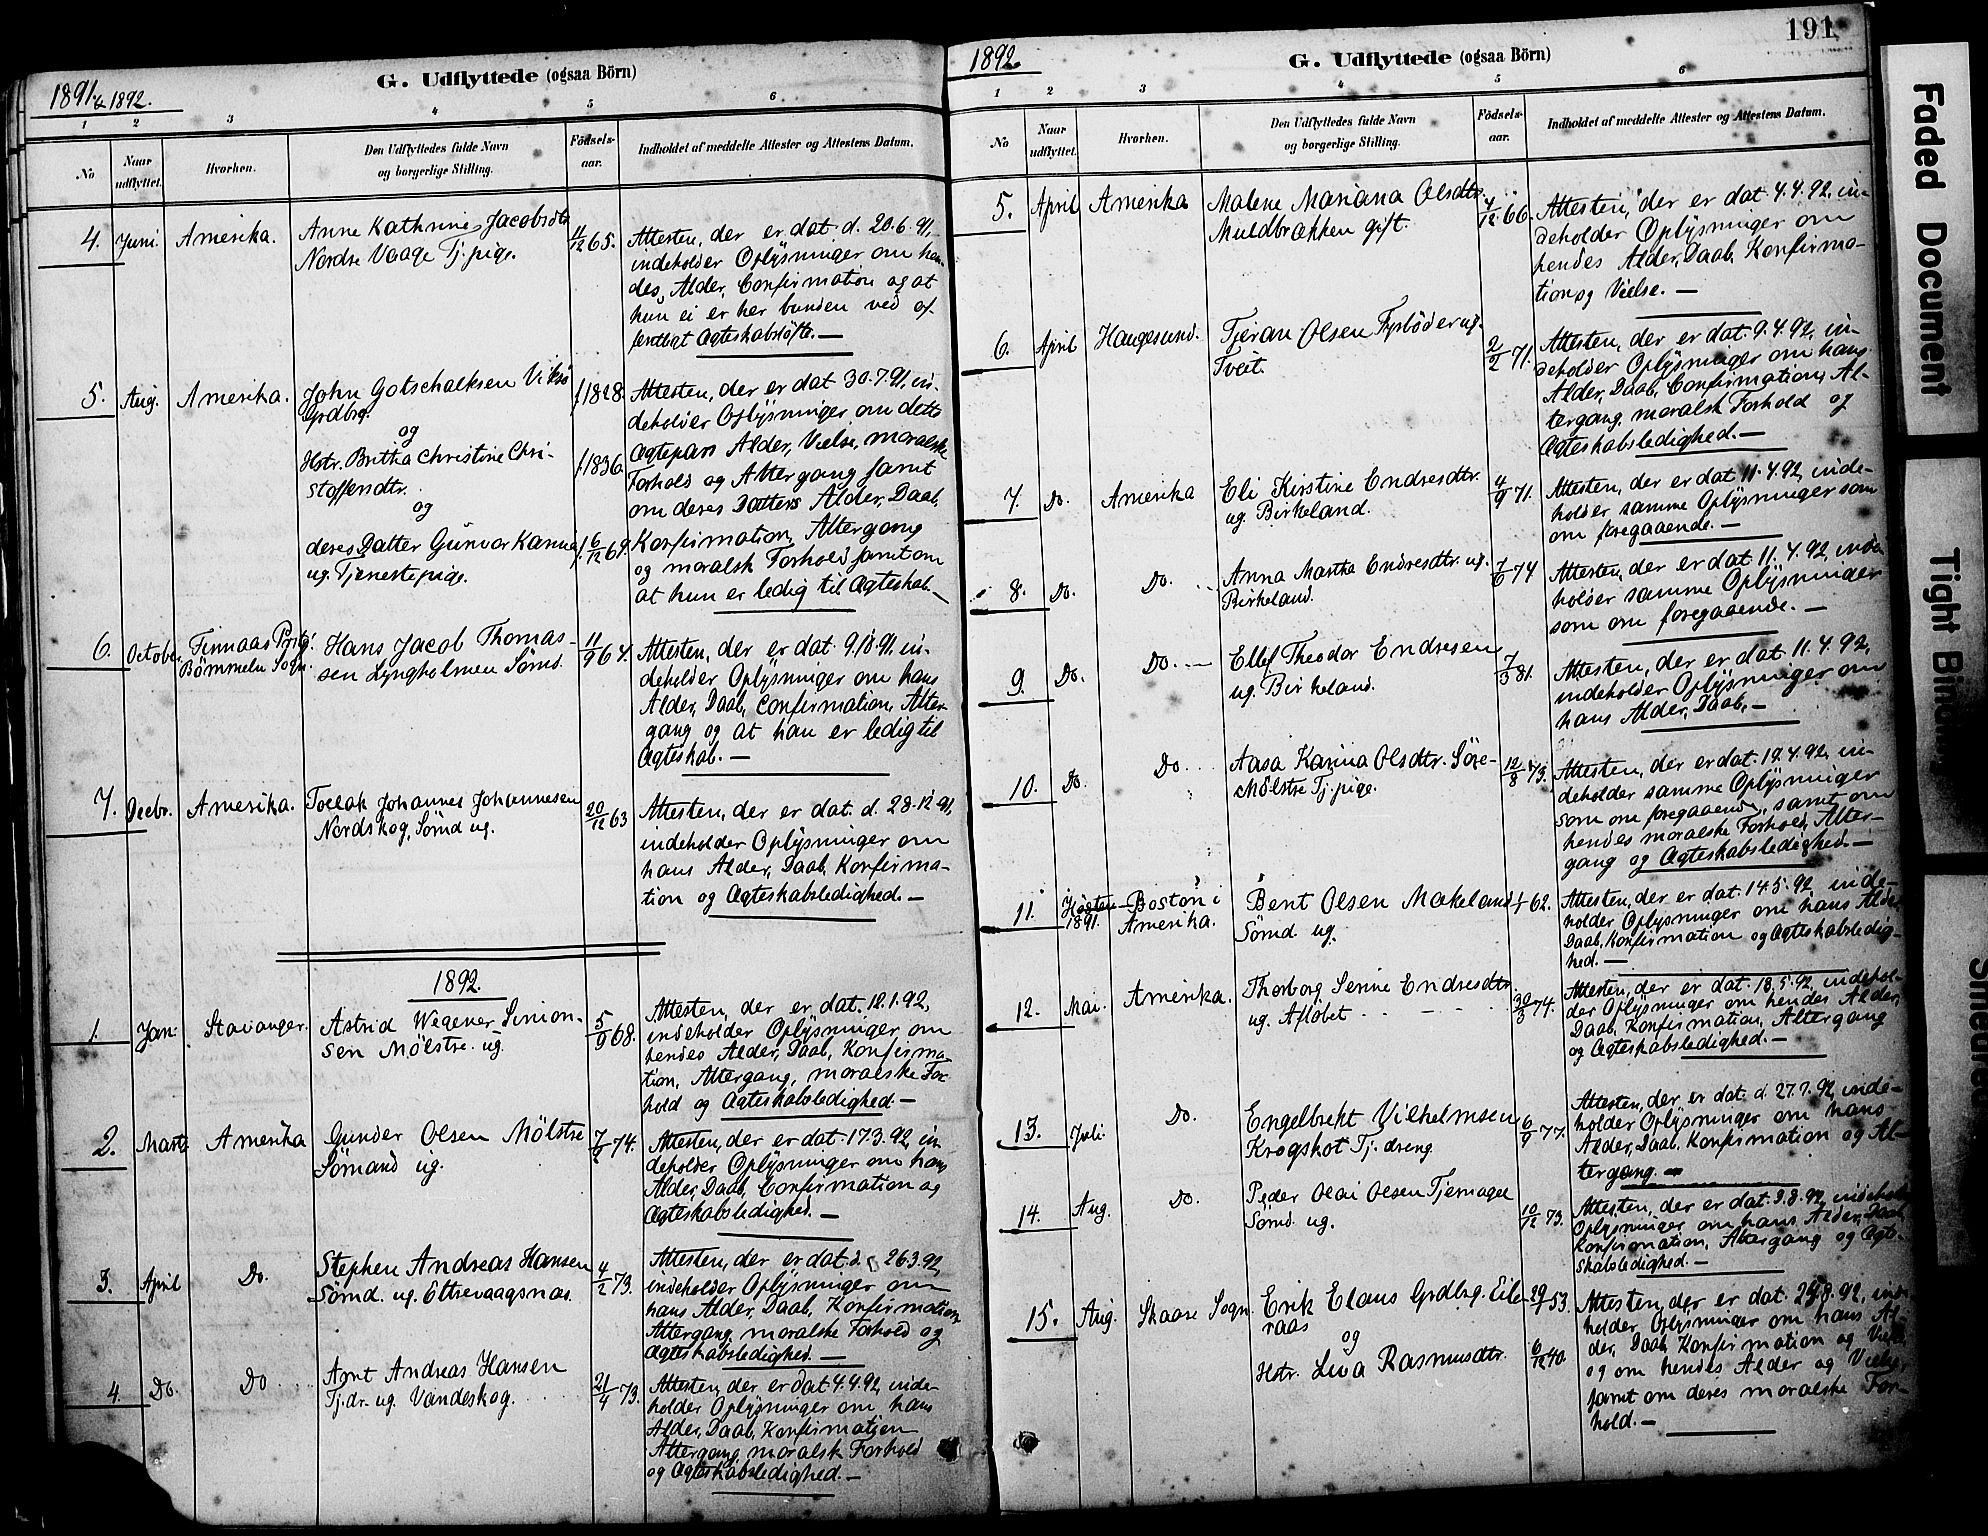 1891 & 1892.
G. Udflyttede (ogsaa Börn)
1 2 3 4 5 6
No
Naar udflyttet.
Hvorhen.
Den Udflyttedes fulde Navn
og borgerlige Stilling.
Födsels-
aar.
Indholdet af meddelte Attester og Attestens Datum.
4. Juni. Amerika.
Anne Kathrine Jacobsdtr
Nordre Vaage Tj. pige.
11/12 65.
Attesten, der er dat. d. 20.6.91,
indeholder Oplysninger om hen-
des Alder, Confirmation og at
hun ei er her bunden ved of-
fentligt Ægteskabsløfte. —
5. Aug. Amerika.
John Gotschalksen Viksø
Grdbrg.
f. 1828.
og
Hstr. Britha Christine Chri-
stoffersdtr.
f. 1836.
og
deres Datter Gunvor Karine
ug. Tjenestepige.
f. 6/12 69.
Attesten, der er dat. 30.7.91, in-
deholder Oplysninger om dette
Ægtepars Alder, Vielse, moralske
Forhold og Altergang samt
om deres Datters Alder, Daab,
Konfirmation, Altergang
og moralsk Forhold samt om
at hun er ledig til Ægteskab. —
6. October Finnaas Prstg.
Bömmeln Sogn.
Hans Jacob Thomas-
sen Lyngholmen Sömd.
11/9 64.
Attesten, der er dat. 9.10.91, in-
deholder Oplysninger om hans
Alder, Daab, Confirmation, Alter-
gang og at han er ledig til
Ægteskab. —
7. Decbr. Amerika.
Tollak Johannes Johannesen
Nordskog, Sömd ug.
20/12 63
Attesten, der er dat. d. 28.12.91,
indeholder Oplysninger om
hans Alder, Daab, Konfirma-
tion og Ægteskabsledighed. —
1892.
1. Jan: Stavanger.
Astrid Wegener Simon-
sen Mölstre. ug.
5/9 68.
Attesten, der er dat. 12.1.92,
indeholder Oplysninger om
hendes Alder, Daab, Konfirma-
tion, Altergang, moralske For-
hold og Ægteskabsledighed —
2. Marts Amerika
Gunder Olsen Mölstre
Sömand ug.
74.
Attesten, der er dat. 17.3.92, in-
deholder Oplysninger om hans
Alder, Daab, Confirmation og
Ægteskabsledighed. —
3. April Do.
Stephen Andreas Hansen
Sömd. ug. Eltrevaagsnæs.
4/2 73.
Attesten, der er dat. d. 26.3.92,
indeholder Oplysninger om
hans Alder, Daab, Konfirmation,
Altergang, moralske Forhold og
Ægteskabsledighed. —
4. Do. Do
Arnt Andreas Hansen
Tj. dr. ug. Vandeskog.
21/4 73.
Attesten, der er dat 4.4.92, inde-
holder Oplysninger om hans
Alder, Daab, Konfirmation
Altergang, moralsk Forhold
og Ægteskabsledighed. —
191.
1892.
G. Udflyttede (ogsaa Börn)
1 2 3 4 5 6
No
Naar udflyttet.
Hvorhen.
Den Udflyttedes fulde Navn
og borgerlige Stilling.
Födsels-
aar.
Indholdet af meddelte Attester og Attestens Datum.
5. April Amerika
Malene Mariana Olsdtr
Muldbrækken gift.
7/12 66.
Attesten, der er dat. 4.4.92, in-
deholder Oplysninger om
hendes Alder, Daab, Konfirma-
tion og Vielse. —
6. April Haugesund.
Tjeran Olsen Fyrbøder ug.
Tveit.
2/2 71.
Attesten, der er dat. 9.4.92, in-
deholder Oplysninger om hans
Alder, Daab, Confirmation, Al-
tergang, moralsk Forhold og
Ægteskabsledighed. —
7. Do. Amerika
Eli Kirstine Endresdtr.
ug. Birkeland.
4/9 71.
Attesten, der er dat 11.4.92, inde-
holder samme Oplysninger som
om foregaaende. —
8. Do. Do.
Anna Martha Endresdtr. ug.
Birkeland.
7/6 74
Attesten, der er dat 11.4.92, inde-
holder samme Oplysninger
som om foregaaende. —
9. Do. Do. —
Ellef Theodor Endresen
ug. Birkeland.
7/3 81.
Attesten, der er dat. 11.4.92,
indeholder Oplysninger om
hans Alder, Daab, —
10. Do. Do.
Aasa Karina Olsdtr. Söre-
Mölstre Tj. pige.
12/8 73.
Attesten, der er dat. 19.4.92, in-
deholder samme Oplysninger
som om foregaaende, samt om
hendes moralske Forhold, Alter-
gang og Ægteskabsledighed. —
11. Høsten
1891.
Boston i
Amerika.
Bent Olsen Mækeland
Sömd. ug.
62.
Attesten, der er dat. 14.5.92, inde-
holder Oplysninger om hans Alder
Daab, Konfirmation og Ægteskabsledig-
hed. —
12. Mai. Amerika.
Thorborg Serine Endresdtr.
ug. Aflöbet
74.
Attesten, der er dat. 18.5.92, indehol-
der Oplysninger om hendes Alder,
Daab, Konfirmation, Altergang
og Ægteskabsledighed. —
13. Juli. Do.
Engelbrekt Vilhelmsen
Krogskot Tj. dreng.
6/9 77.
Attesten, der er dat. d. 27.7.92, inde-
holder Oplysninger om hans
Alder, Daab, Konfirmation og Al-
tergang. —
14. Aug. Do.
Peder Olai Olsen Tjernagel
Sömd. ug.
10/12 73.
Attesten, der er dat. 9.8.92, indeholder
Oplysninger om hans Alder, Daab
Konfirmation, Altergang og Ægte-
skabsledighed. —
15. Aug. Skaare Sogn.
Erik Elaus Grdbrg. Eile-
raas
29/1 53.
og
Hstr. Liva Rasmusdtr.
6/12 40.
Attesten, der er dat. 29.8.92, inde-
holder Oplysninger om hans Al-
der, Daab, Konfirmation og Vielse
og om hendes Alder og Vielse,
samt om deres moralske For-
hold. —
Faded Document
Tight Bin